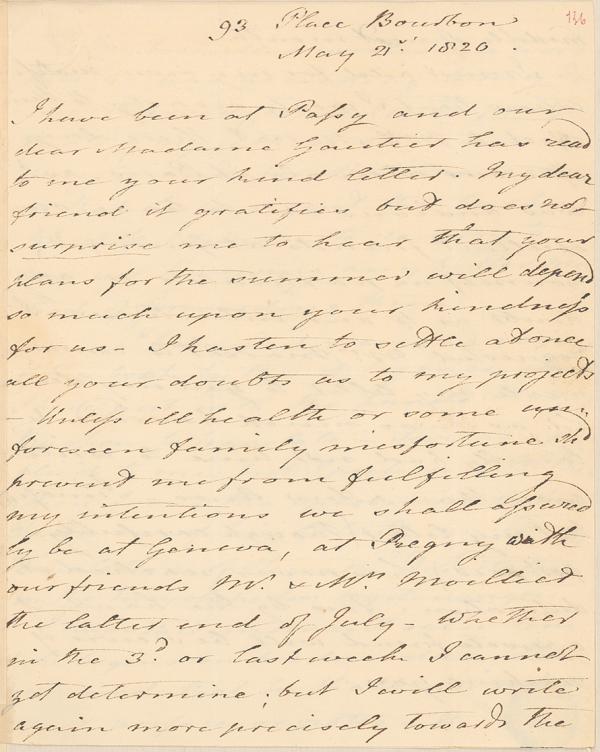 136
93 Place Bourbon
May 21st 1820.
I have been at Passy and our
dear Madame Gautier has read
to me your kind letter. My dear
friend it gratifies but does not
surprise me to hear that your
plans for the summer will depend
so much upon your kindness
for us – I hasten to settle at once
all your doubts as to my projects
– Unless ill health or some un-
foreseen family misfortune shd
prevent me from fulfilling
my intentions we shall assured
ly be at Geneva, at Pregny with
our friends Mr. & Mrs Moilliet
the latter end of July – Whether
in the 3d. or last week I cannot
yet determine; but I will write
again more precisely towards the